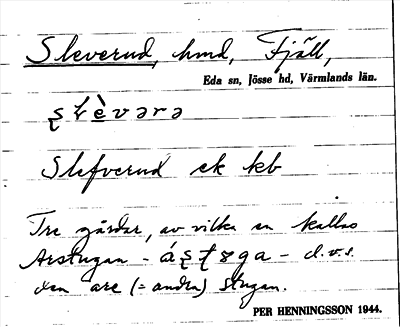 Sleverud, hmd, Fjäll,
Eda sn, Jösse hd, Värmlands län.
Slefverud ek kb
Tre gårdar, av vilka en kallas
Arstugan - - d.v.s.
den are (= andra) stugan.
PER HENNINGSSON 1944.